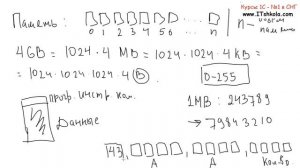 Курсы 1С - №1 в СНГ
www.ITshkola.com
Память:
0 1 2 3 4 5 6 ... n
n -
4GB = 1024 · 4 MB = 1024 · 1024 · 4 кB =
= 1024 · 1024 · 1024 · 4 B
0-255
1MB: 243789
→ 79843210
Данные
143
А А Кол-во